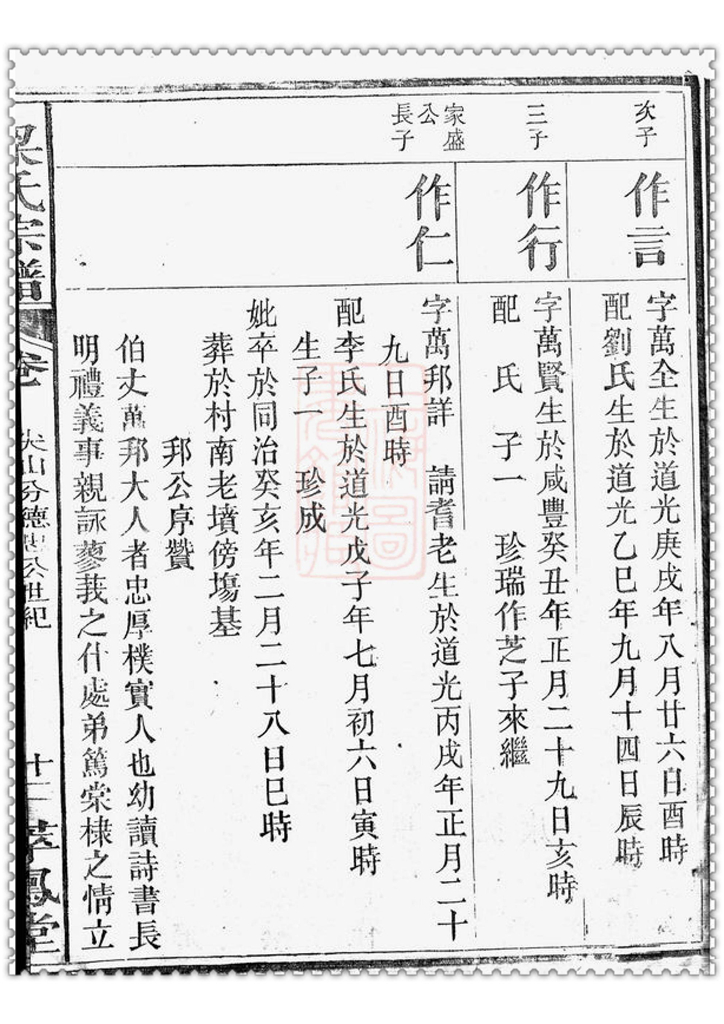 次子
作言
字萬全生於道光庚戌年八月廿六日酉時
配劉氏生於道光乙巳年九月十四日辰時
三子
作行
字萬賢生於咸豐癸丑年正月二十九日亥時
配 氏 子一 珍瑞作芝子來繼
家盛
公
長子
作仁
字萬邦詳 請耆老生於道光丙戌年正月二十
九日酉時
配李氏生於道光戊子年七月初六日寅時
生子一 珍成
妣卒於同治癸亥年二月二十八日巳時
葬於村南老墳傍塲墓
邦公序贊
伯丈萬邦大人者忠厚樸實人也幼讀詩書長
明禮義事親詠蓼莪之什處弟篤棠棣之情立
梁氏宗譜
卷
尖山分德忠公世紀
十二
鳳堂